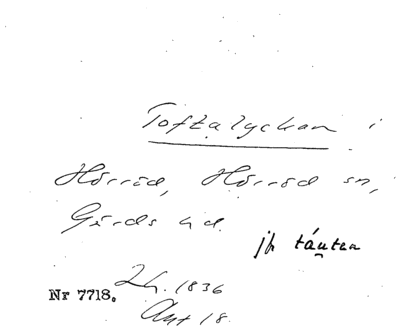 Toftalyckan i
Hörröd, Hörröd sn,
Gärds hd.
jfr táu̯tan
Nr 7718. Lh. 1836
Akt 18.